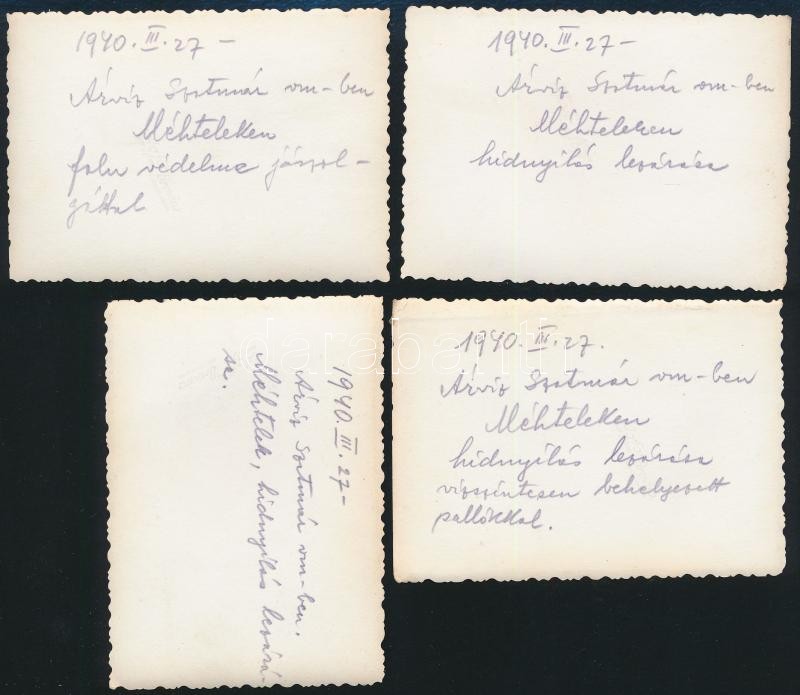 1940. III. 27 –
Árvíz Szatmár vm-ben
Méhteleken
falu védelme jászol-
gáttal
1940. III. 27 –
Árvíz Szatmár vm-ben
Méhteleken
hídnyílás lezárása
1940. III. 27 –
Árvíz Szatmár vm-ben.
Méhtelek, hídnyílás lezárá-
sa.
1940. III. 27.
Árvíz Szatmár vm-ben
Méhteleken
hídnyílás lezárása
vízszintesen behelyezett
pallókkal.
darabanth